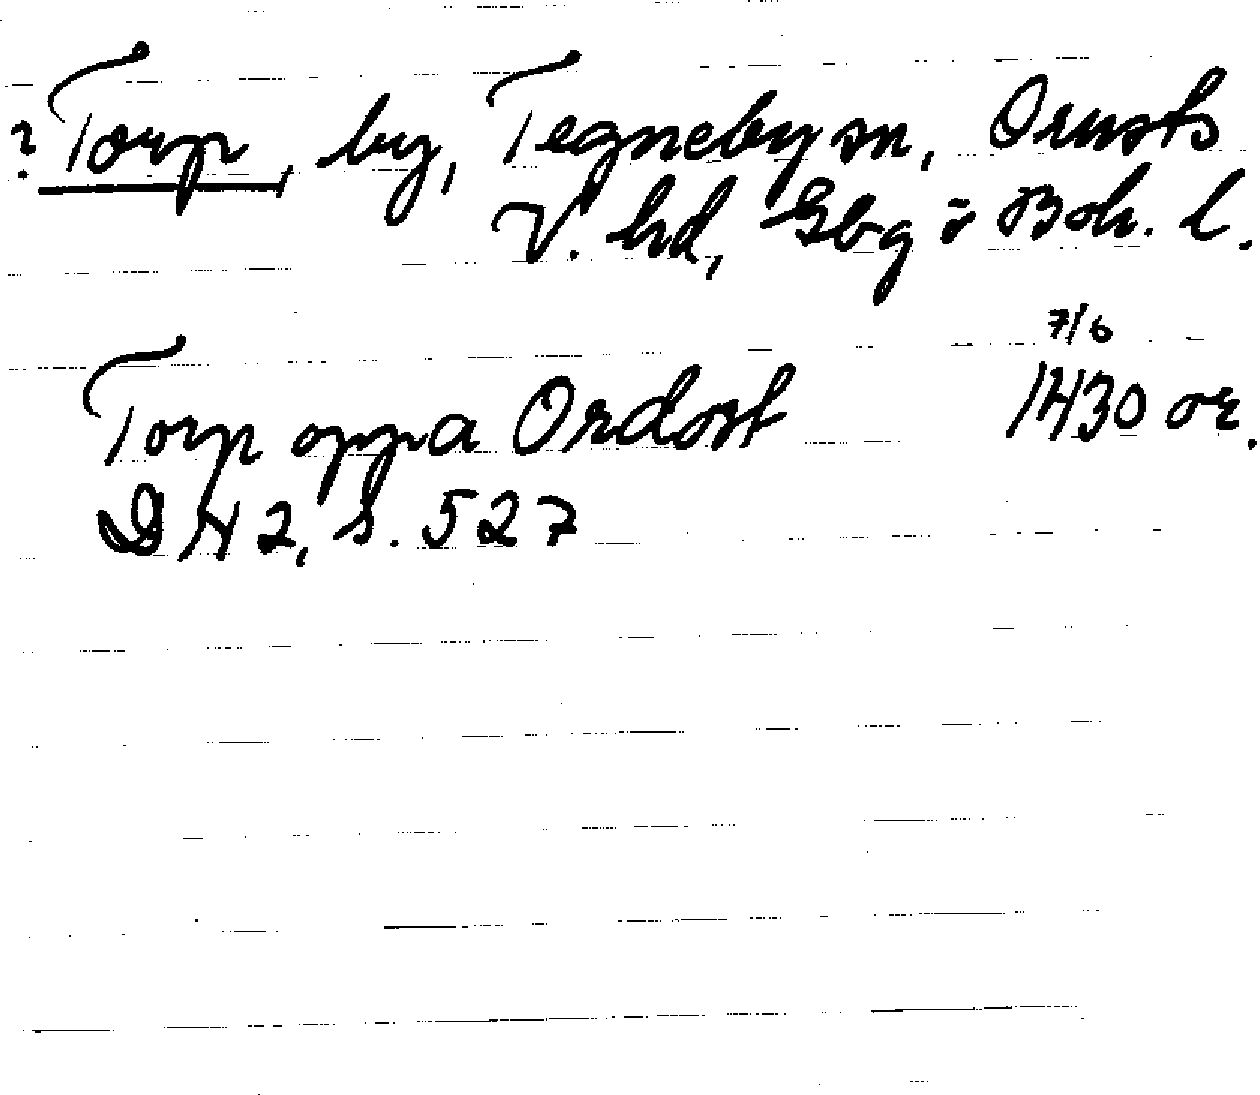 ? Torp, by, Tegneby sn, Orusts
V. hd, Gbg o Boh. l.
7/6
Torp oppa Ordost 1430 or.
DN 2, s. 527